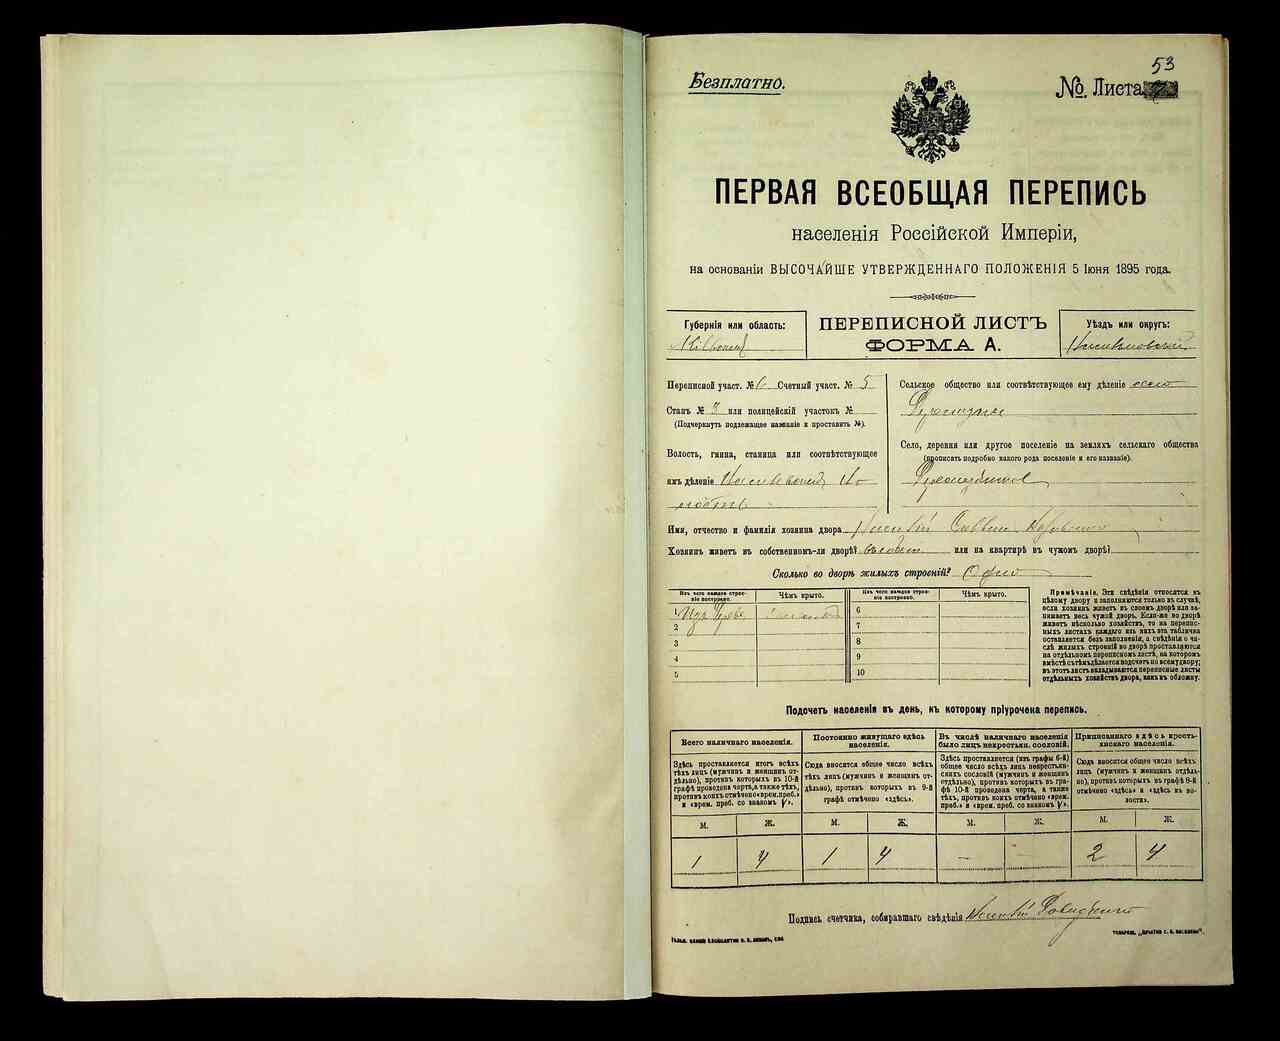 53
Безплатно.
№. Листа
ПЕРВАЯ ВСЕОБЩАЯ ПЕРЕПИСЬ
населенія Россійской Имперіи,
на основаніи ВЫСОЧАЙШЕ УТВЕРЖДЕННАГО ПОЛОЖЕНІЯ 5 Іюня 1895 года.
Губернія или область:
ПЕРЕПИСНОЙ ЛИСТЪ
ФОРМА А.
Уѣздъ или округъ:
Переписной участ. № 6 Счетный участ. № 5
Станъ № 3 или полицейскій участокъ №
(Подчеркнуть подлежащее названіе и проставить №).
Волость, гмина, станица или соотвѣтствующее
имъ дѣленіе
Сельское общество или соотвѣтствующее ему дѣленіе село
Село, деревня или другое поселеніе на земляхъ сельскаго общества
(прописать подробно какого рода поселеніе и его названіе).
Имя, отчество и фамилія хозяина двора
Хозяинъ живетъ въ собственномъ-ли дворѣ? или на квартирѣ въ чужомъ дворѣ?
Сколько во дворѣ жилыхъ строеній? Одно
Изъ чего каждое строеніе построено.
Чѣмъ крыто.
Изъ чего каждое строеніе построено.
Чѣмъ крыто.
1 Изъ
2
3
4
5
6
7
8
9
10
Примѣчаніе. Эти свѣдѣнія относятся къ
цѣлому двору и заполняются только въ случаѣ,
если хозяинъ живетъ въ своемъ дворѣ или занимаетъ
весь чужой дворъ. Если-же во дворѣ
живетъ нѣсколько хозяйствъ, то на переписныхъ
листахъ каждаго изъ нихъ эта табличка
оставляется безъ заполненія, а свѣдѣнія о числѣ
жилыхъ строеній во дворѣ проставляются
на отдѣльномъ переписномъ листѣ, на которомъ
вмѣстѣ съ тѣмъ дѣлается подсчетъ по всему двору;
въ этотъ листъ вкладываются переписные листы
отдѣльныхъ хозяйствъ двора, какъ въ обложку.
Подсчетъ населенія въ день, къ которому пріурочена перепись.
Всего наличнаго населенія.
Здѣсь проставляется итогъ всѣхъ
тѣхъ лицъ (мужчинъ и женщинъ отдѣльно),
противъ которыхъ въ 10-й
графѣ проведена черта, а также тѣхъ,
противъ коихъ отмѣчено «врем. преб.»
и «врем. преб. со знакомъ V».
Постоянно живущаго здѣсь
населенія.
Сюда вносится общее число всѣхъ
тѣхъ лицъ (мужчинъ и женщинъ отдѣльно),
противъ которыхъ въ 9-й
графѣ отмѣчено «здѣсь».
Въ числѣ наличнаго населенія
было лицъ некрестьян. сословій.
Здѣсь проставляется (изъ графы 6-й)
общее число всѣхъ лицъ некрестьянскихъ
сословій (мужчинъ и женщинъ
отдѣльно), противъ которыхъ въ графѣ
10-й проведена черта, а также
тѣхъ, противъ коихъ отмѣчено «врем.
преб.» и «врем. преб. со знакомъ V».
Приписаннаго здѣсь крестьянскаго
населенія.
Сюда вносится общее число всѣхъ
лицъ (мужчинъ и женщинъ отдѣльно),
противъ которыхъ въ графѣ 8-й
отмѣчено «здѣсь» и «здѣсь въ волости».
М. Ж. М. Ж. М. Ж. М. Ж.
1 4 1 4 – – 2 4
Подпись счетчика, собиравшаго свѣдѣнія